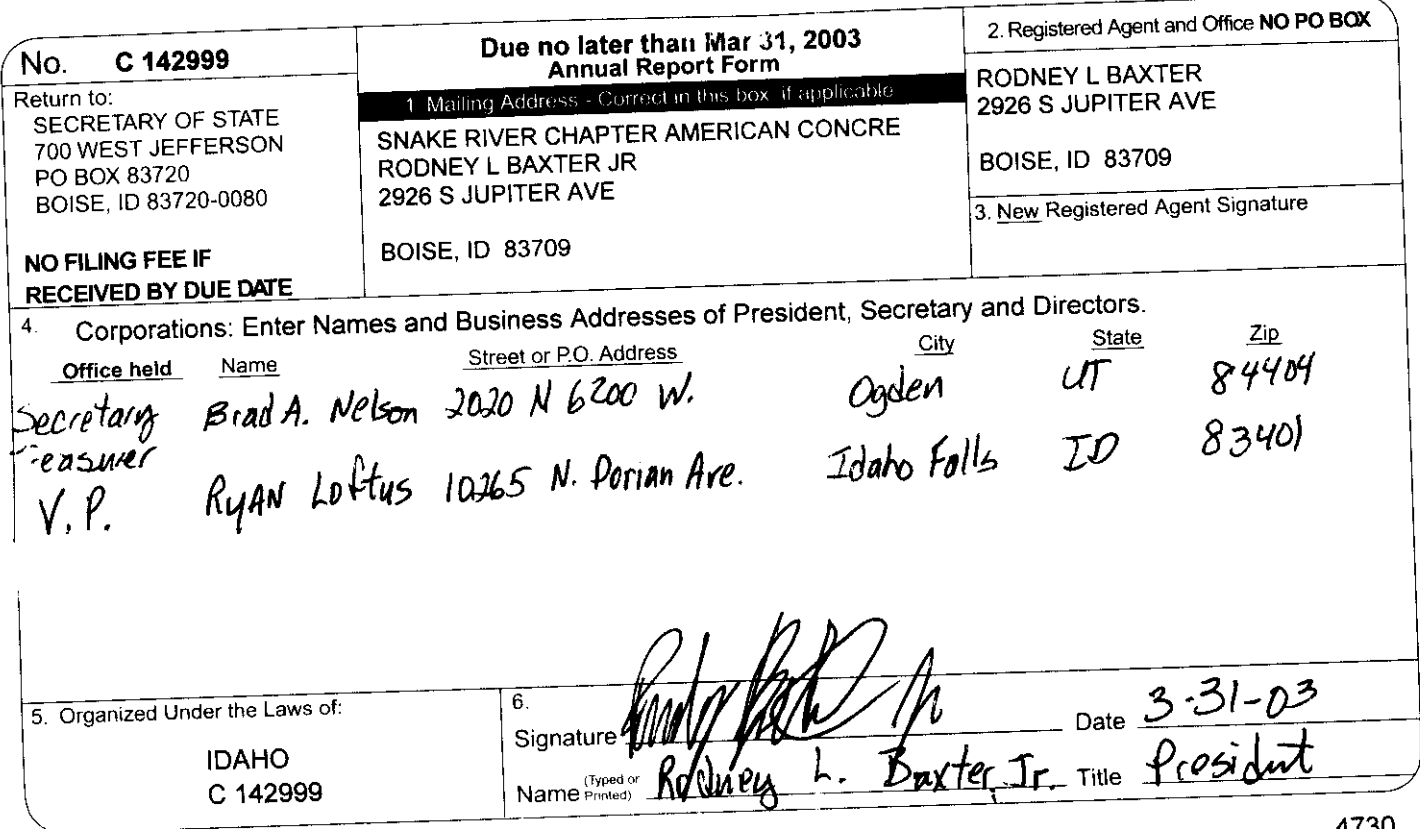 No. C 142999
Return to:
SECRETARY OF STATE
700 WEST JEFFERSON
PO BOX 83720
BOISE, ID 83720-0080
NO FILING FEE IF
RECEIVED BY DUE DATE
Due no later than Mar 31, 2003
Annual Report Form
1 Mailing Address - Correct in this box if applicable
SNAKE RIVER CHAPTER AMERICAN CONCRE
RODNEY L BAXTER JR
2926 S JUPITER AVE
BOISE, ID 83709
2. Registered Agent and Office NO PO BOX
RODNEY L BAXTER
2926 S JUPITER AVE
BOISE, ID 83709
3. New Registered Agent Signature
4. Corporations: Enter Names and Business Addresses of President, Secretary and Directors.
Office held Name Street or P.O. Address City State Zip
Secretary Brad A. Nelson 2020 N 6200 W. Ogden UT 84404
easurer
V.P. RyAN Loftus 10265 N. Dorian Ave. Idaho Falls ID 83401
5. Organized Under the Laws of:
IDAHO
C 142999
6.
Signature Date 3-31-03
Name (Typed or Printed) Rodney L. Baxter, Jr. Title President
4730